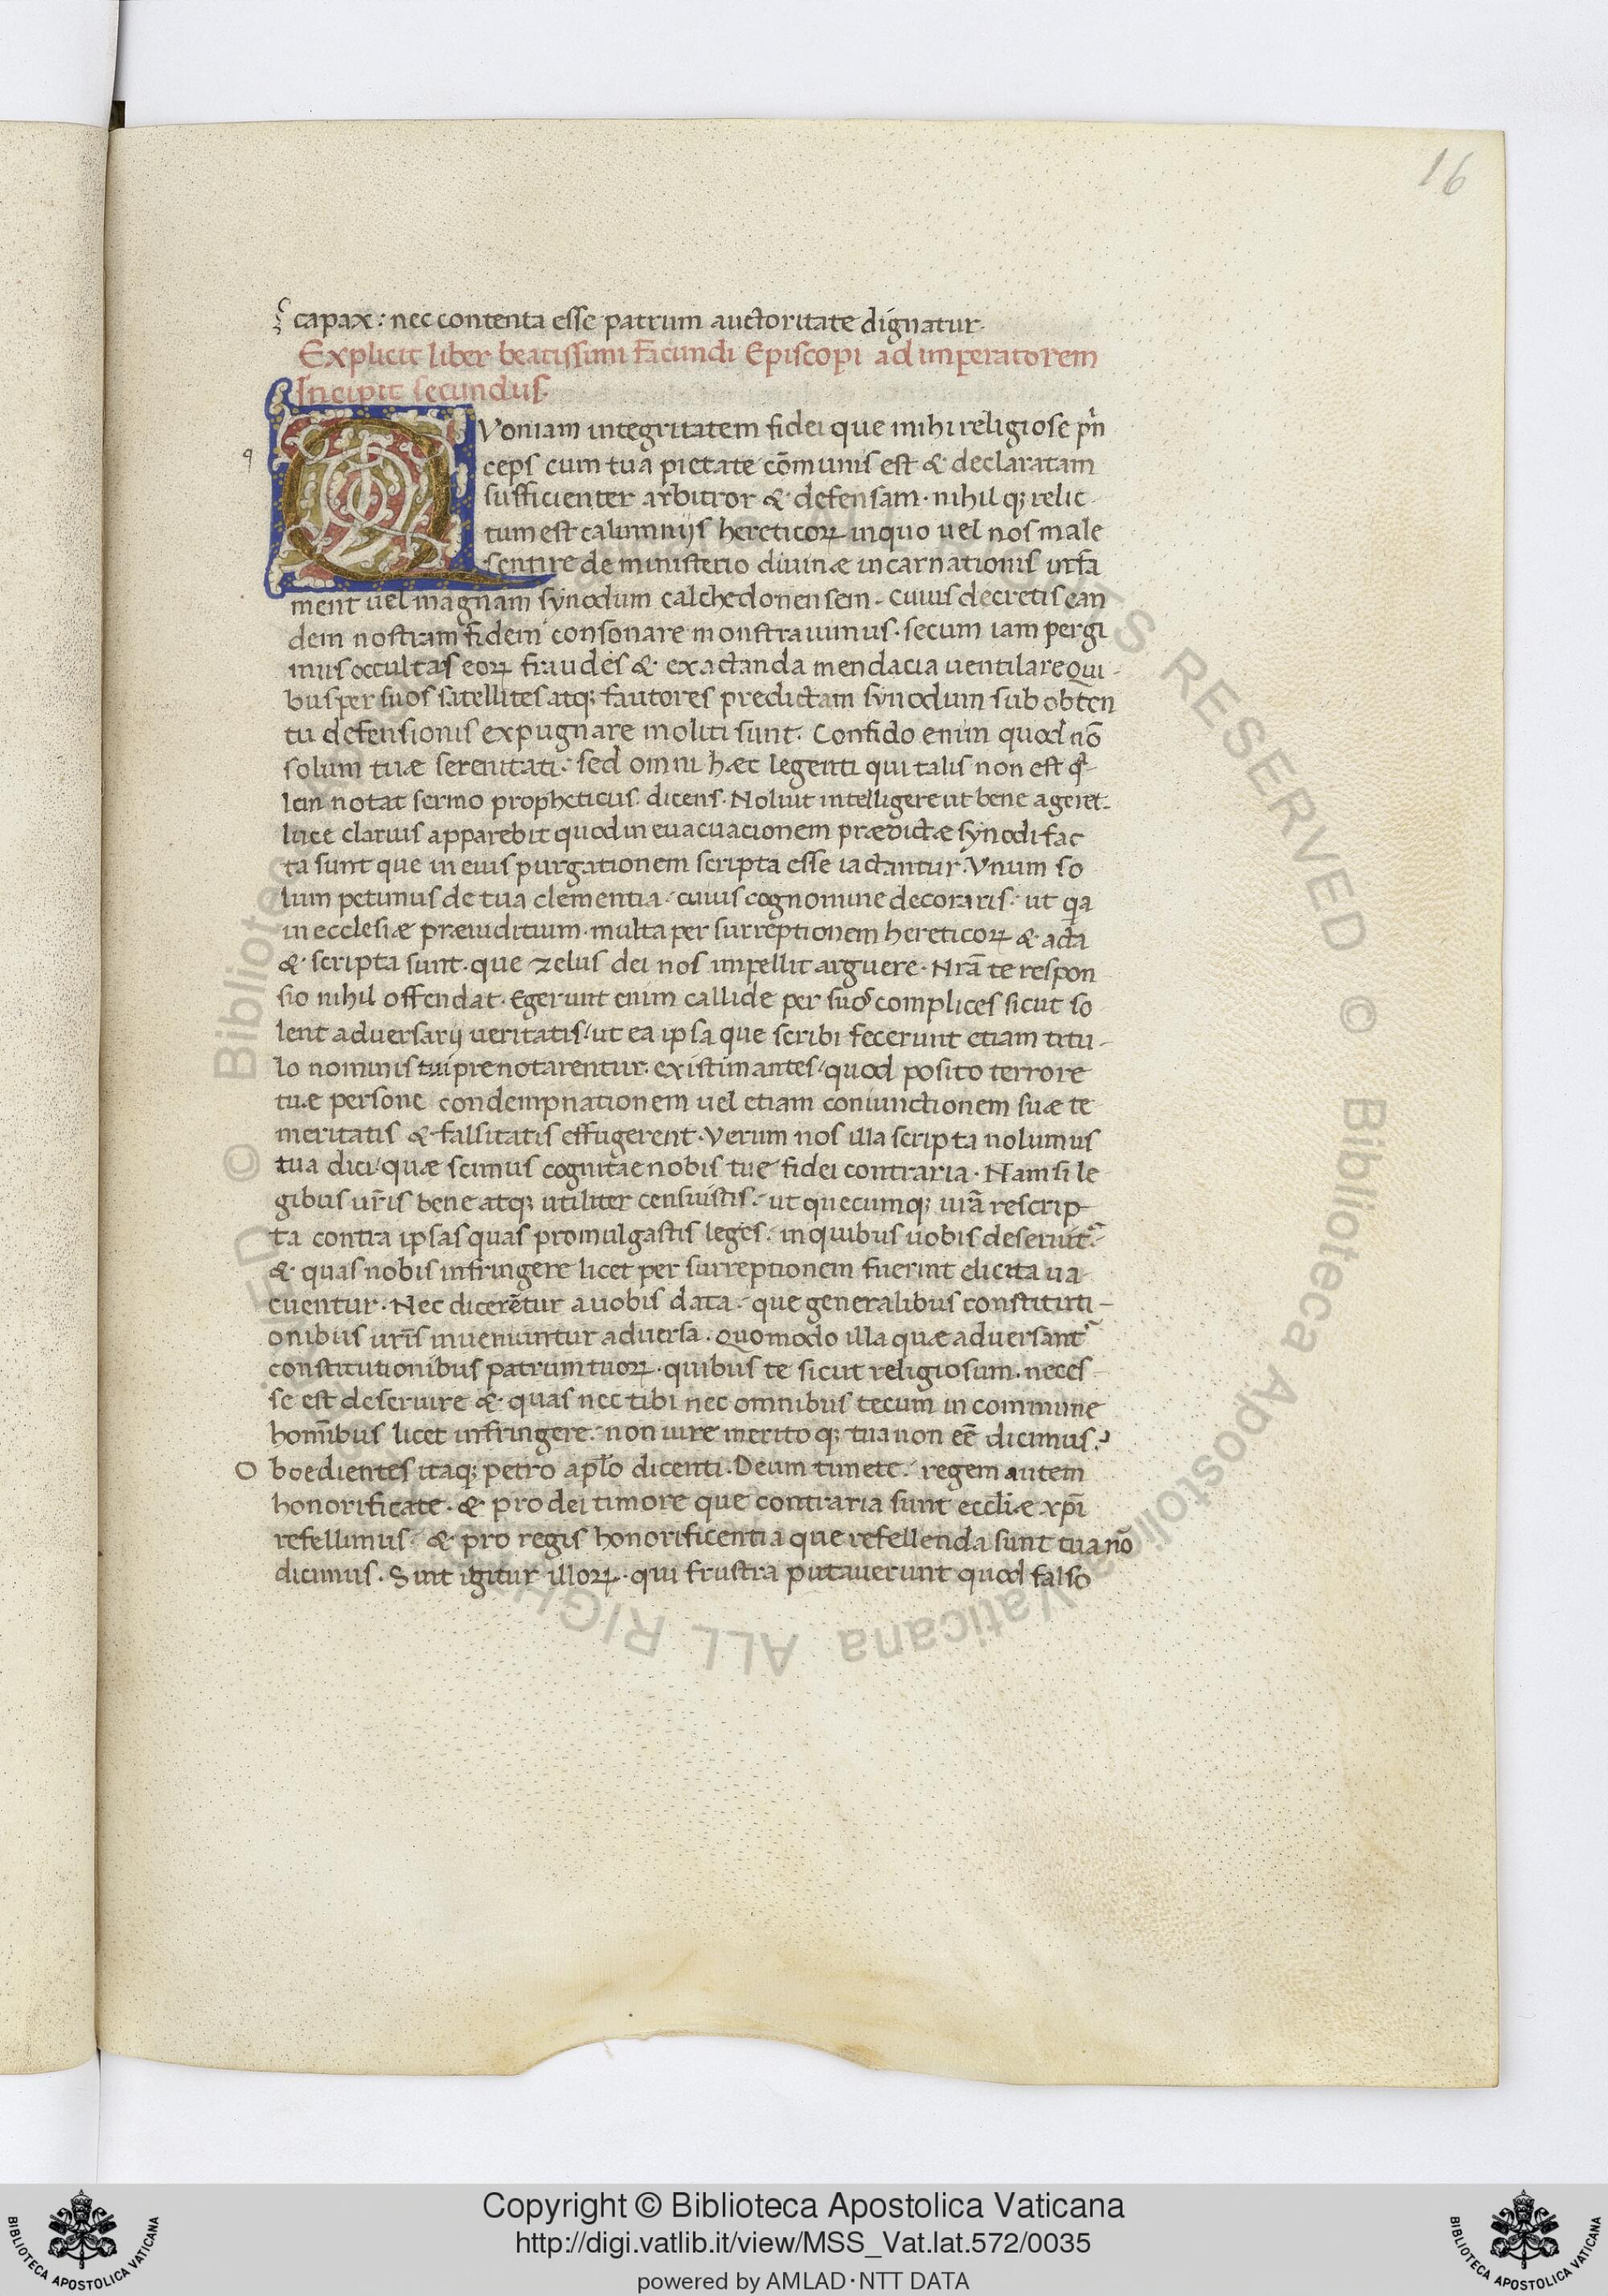 16
capax: nec contenta esse patrum auctoritate dignatur.
Explicit liber beatissimi Facundi Episcopi ad imperatorem
Incipit secundus.
q
QVoniam integritatem fidei que mihi religiose pⁱn
ceps cum tua pietate cōmunis est & declaratam
sufficienter arbitror & defensam · nihil qꝫ relic
tum est calumnijs hereticoꝝ inquo uel nos male
sentire de ministerio diuinæ incarnationis
ment uel magnam synodum calchedonensem. Cuius decretis ean
dem nostram fidem consonare monstrauimus · secum iam pergi
mus occultas eoꝝ fraudes & exactanda mendacia uentilare Qui-
bus per suos satellites atqꝫ fautores predictam synodum sub obten
tu defensionis expugnare moliti sunt. Confido enim quod nō
solum tuæ serenitati: sed omni hæc legenti qui talis non est qͣ
lem notat sermo propheticus dicens. Noluit intelligere ut bene ageret.
luce clarius apparebit quod in euacuacionem prædictæ synodi fac
ta sunt que in eius purgationem scripta esse iactantur. Vnum so
lum petimus de tua clementia. cuius cognomine decoraris: ut qa
in ecclesiæ præiuditium · multa per surreptionem hereticoꝝ & acta
& scripta sunt. que zelus dei nos impellit arguere. Nrā te respon
sio nihil offendat. Egerunt enim callide per suos complices sicut so
lent aduersarij ueritatis / ut ea ipsa que scribi fecerunt etiam titu-
lo nominis tui prenotarentur. existimantes / quod posito terrore
tuæ persone condempnationem uel etiam coniunctionem suæ te
meritatis & falsitatis effugerent. Verum nos illa scripta nolumus
tua dici / quæ scimus cognitae nobis tue fidei contraria. Nam si le
gibus uris bene atqꝫ utiliter censuistis: ut quecumqꝫ urā rescrip
ta contra ipsas quas promulgastis leges: in quibus uobis deseruit:
& quas nobis infringere licet per surreptionem fuerint elicita ua
cuentur. Nec dicerētur a uobis data: que generalibus constituti-
onibus uris inueniuntur aduersa. Quomodo illa quæ aduersant
constitutionibus patrum tuoꝝ · quibus te sicut religiosum. neces-
se est deseruire & quas nec tibi nec omnibus tecum in commune
homībus licet infringere: non iure merito qꝫ tua non eē dicimus?
Oboedientes itaqꝫ petro aplo dicenti. Deum timete: regem autem
honorificate. & pro dei timore que contraria sunt eccliæ xpi
refellimus: & pro regis honorificentia que refellenda sunt tua nō
dicimus. Sint igitur illoꝝ · qui frustra putauerunt quod falso
© Biblioteca Apostolica Vaticana ALL RIGHTS RESERVED
Copyright © Biblioteca Apostolica Vaticana
http://digi.vatlib.it/view/MSS_Vat.lat.572/0035
powered by AMLAD·NTT DATA
BIBLIOTECA APOSTOLICA VATICANA
BIBLIOTECA APOSTOLICA VATICANA